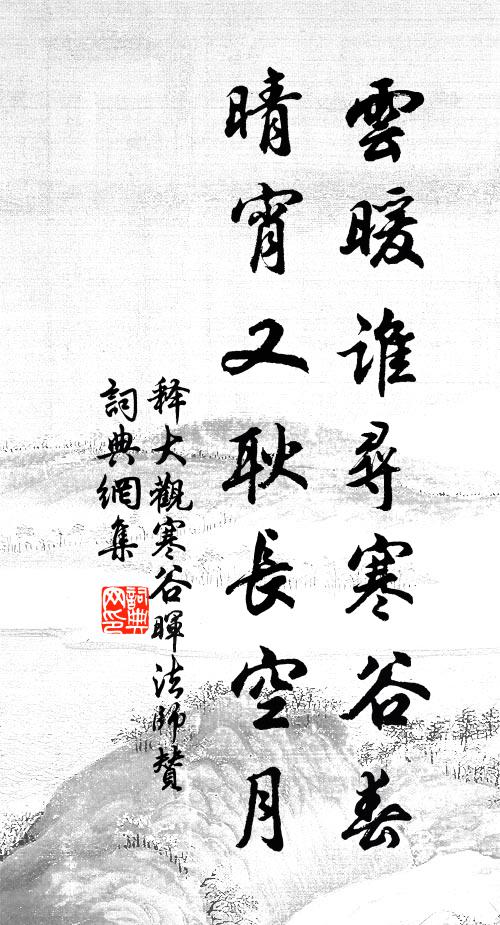 雲暖誰尋寒谷春
晴宵又耿長空月
释大觀寒谷暉法師贊
詞典網集
詞典网印